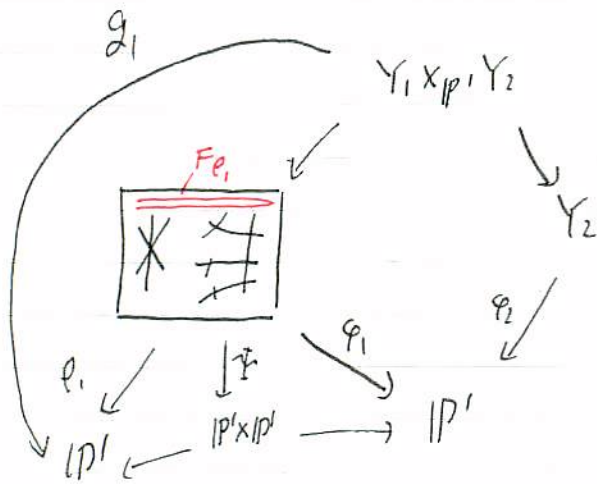 g₁
Y₁ ×_{ℙ¹} Y₂
F_{ρ₁}
Y₂
φ₁
φ₂
ρ₁
Ψ
ℙ¹
ℙ¹×ℙ¹
ℙ¹